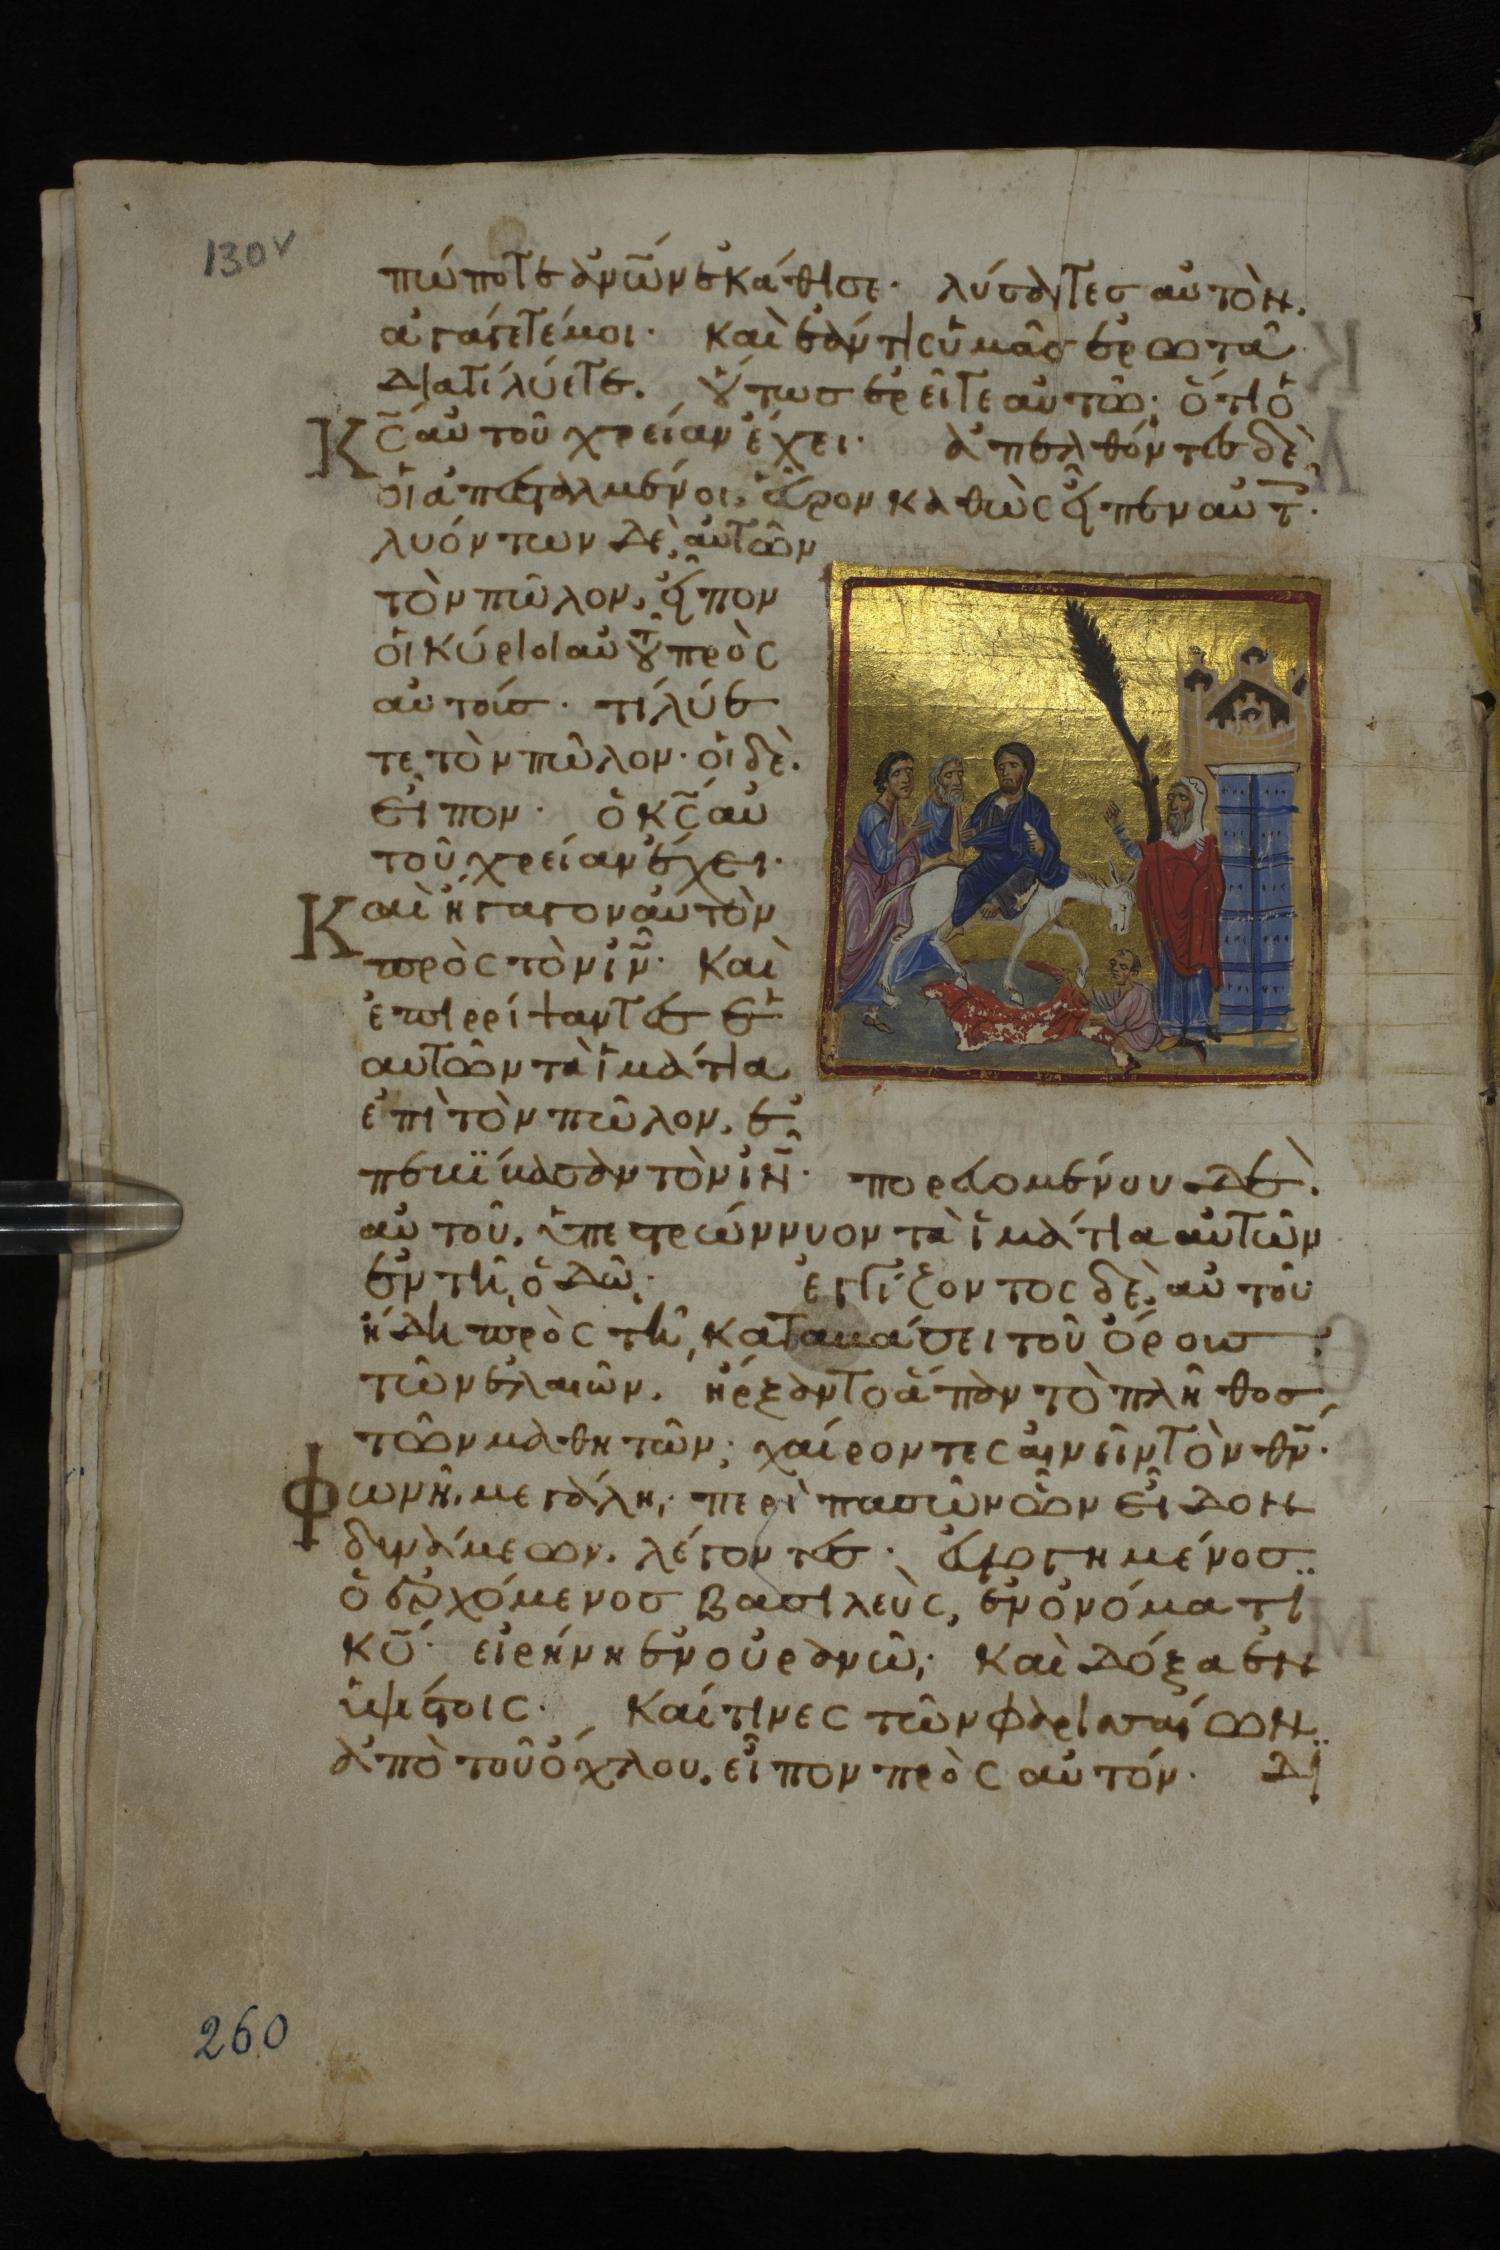 130v
πώποτε ἀν̅ω̅ν ἐκάθισε· λύσαντες αὐτὸν,
ἀγάγετέ μοι· καὶ ἐάν τις ὑμᾶς ἐρωτᾶ
διατί λύετε. οὕτως ἐρεῖτε αὐτῶ· ὅτι ὁ
κ̅ς̅ αὐτοῦ χρείαν ἔχει· ἀπελθόντες δὲ
Κ οἱ ἀπεσταλμένοι, εὗρον καθὼς εἶπεν αὐτ̅·
λυόντων δὲ αὐτῶν
τὸν πῶλον, εἶπον
οἱ κύριοι αὐτοῦ πρὸς
αὐτούς· τί λύε
τε τὸν πῶλον· οἱ δὲ
εἶπον· ὁ κ̅ς̅ αὐ
τοῦ χρείαν ἔχει·
Καὶ ἤγαγον αὐτὸν
πρὸς τὸν ι̅ν̅· καὶ
ἐπιρρίψαντες ἑ
αυτῶν τὰ ἱμάτια
ἐπὶ τὸν πῶλον, ἐ
πεκίκασαν τὸν ι̅ν̅· πορευομένου δὲ
αὐτοῦ, ὑπεστρώννυον τὰ ἱμάτια αὐτῶν
ἐν τῆ ὁδῶ· ἐγγίζοντος δὲ αὐτοῦ
ἤδη πρὸς τῆ καταβάσει τοῦ ὄρους
τῶν ἐλαιῶν, ἤρξαντο ἅπαν τὸ πλῆθος
τῶν μαθητῶν· χαίροντες αἰνεῖν τὸν θ̅ν̅·
Φωνῆ μεγάλη· περὶ πασῶν ὧν εἶδον
δυνάμεων, λέγοντες· εὐλογημένος
ὁ ἐρχόμενος βασιλεὺς, ἐν ὀνόματι
κ̅υ̅· εἰρήνη ἐν οὐρανῶ· καὶ δόξα ἐν
ὑψίστοις· Καί τινες τῶν φαρισαίων
ἀπὸ τοῦ ὄχλου, εἶπον πρὸς αὐτόν· δι
260